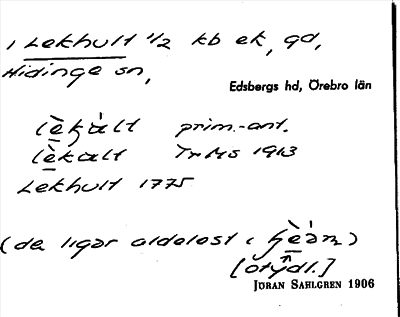 1 Lekhult 1/2 kb ek, gd,
Hidinge sn,
Edsbergs hd, Örebro län
prim.-ant.
lèkalt TrMs 1913
Lekhult 1775
(de ligər aldelest i
[otydl.]
JÖRAN SAHLGREN 1906